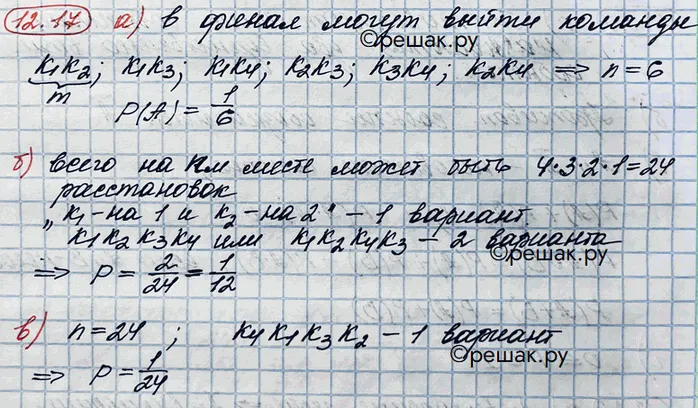 12.17 а) в финал могут выйти команды
©решак.ру
K₁K₂; K₁K₃; K₁K₄; K₂K₃; K₃K₄; K₂K₄ ⟹ n = 6
m
P(A) = 1/6
б) всего на км месте может быть 4·3·2·1=24
расстановок
„K₁-на 1 и K₂-на 2" - 1 вариант
K₁K₂K₃K₄ или K₁K₂K₄K₃ - 2 варианта
©решак.ру
⟹ P = 2/24 = 1/12
в) n=24 ; K₄K₁K₃K₂ - 1 вариант
©решак.ру
⟹ P = 1/24